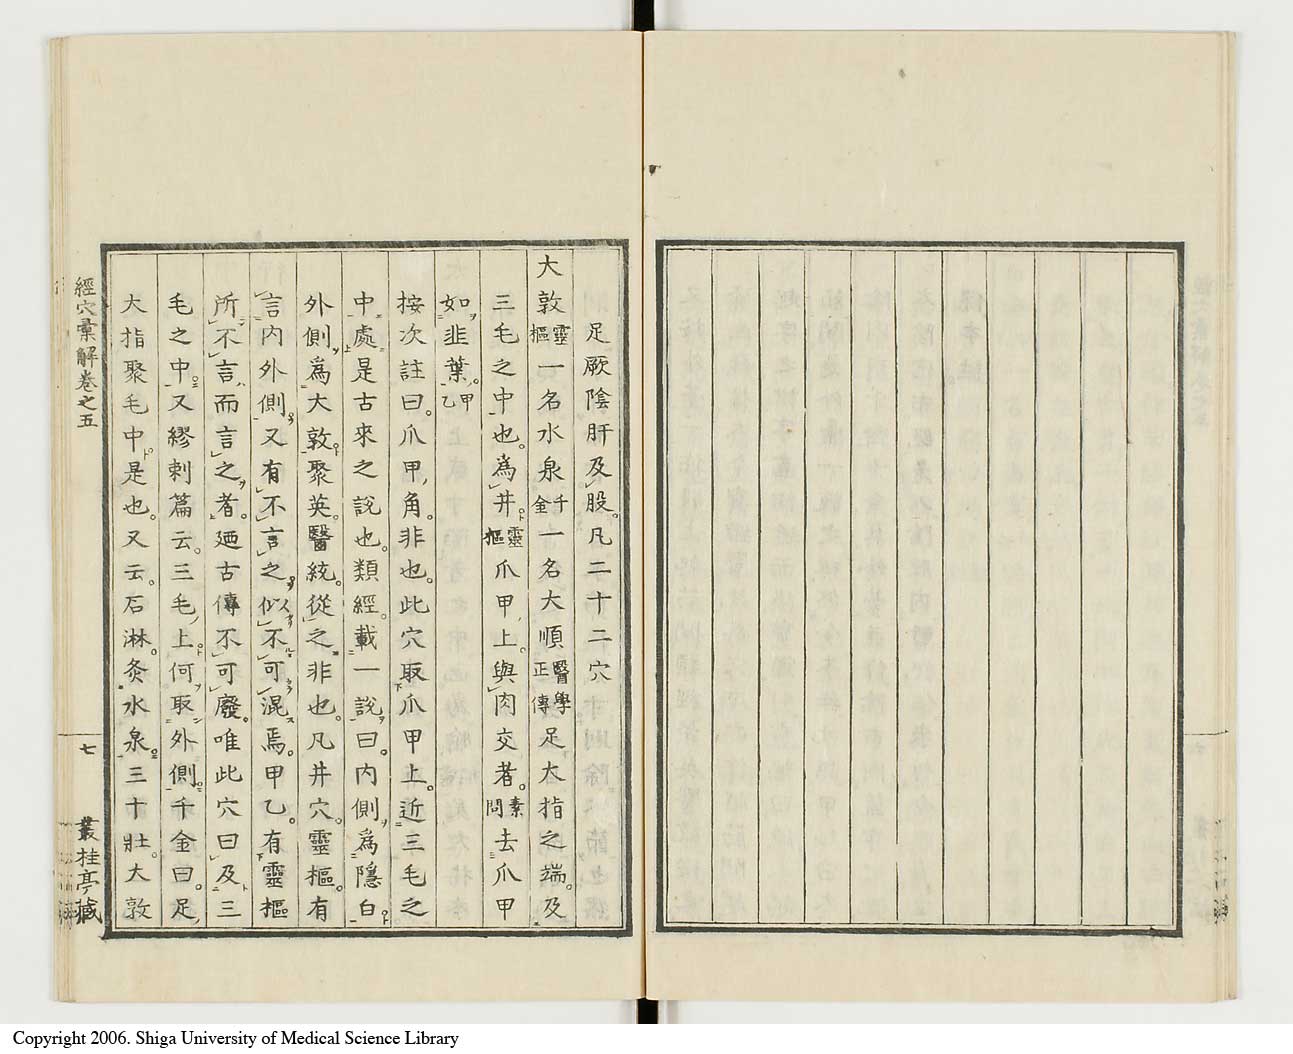 足厥陰肝及股。凡二十二穴
大敦靈樞一名水泉千金一名大順醫學正傳足大指之端。及
三毛之中也。為井。靈樞爪甲上。與肉交者。素問去爪甲
如韭葉。甲乙
按次註曰。爪甲角。非也。此穴取爪甲上。近三毛之
中。處是古來之說也。類經。載一說曰。內側為隱白。
外側為大敦。聚英。醫統。從之。非也。凡井穴。靈樞。有
言內外側。又有不言之。似不可混焉。甲乙。有靈樞
所不言。而言之者。廼古傳不可廢。唯此穴曰及三
毛之中。又繆刺篇云。三毛上。何取外側。千金曰。足
大指聚毛中是也。又云。石淋。灸水泉。三十壯。大敦
經穴彙解卷之五
七
叢桂亭藏
Copyright 2006. Shiga University of Medical Science Library